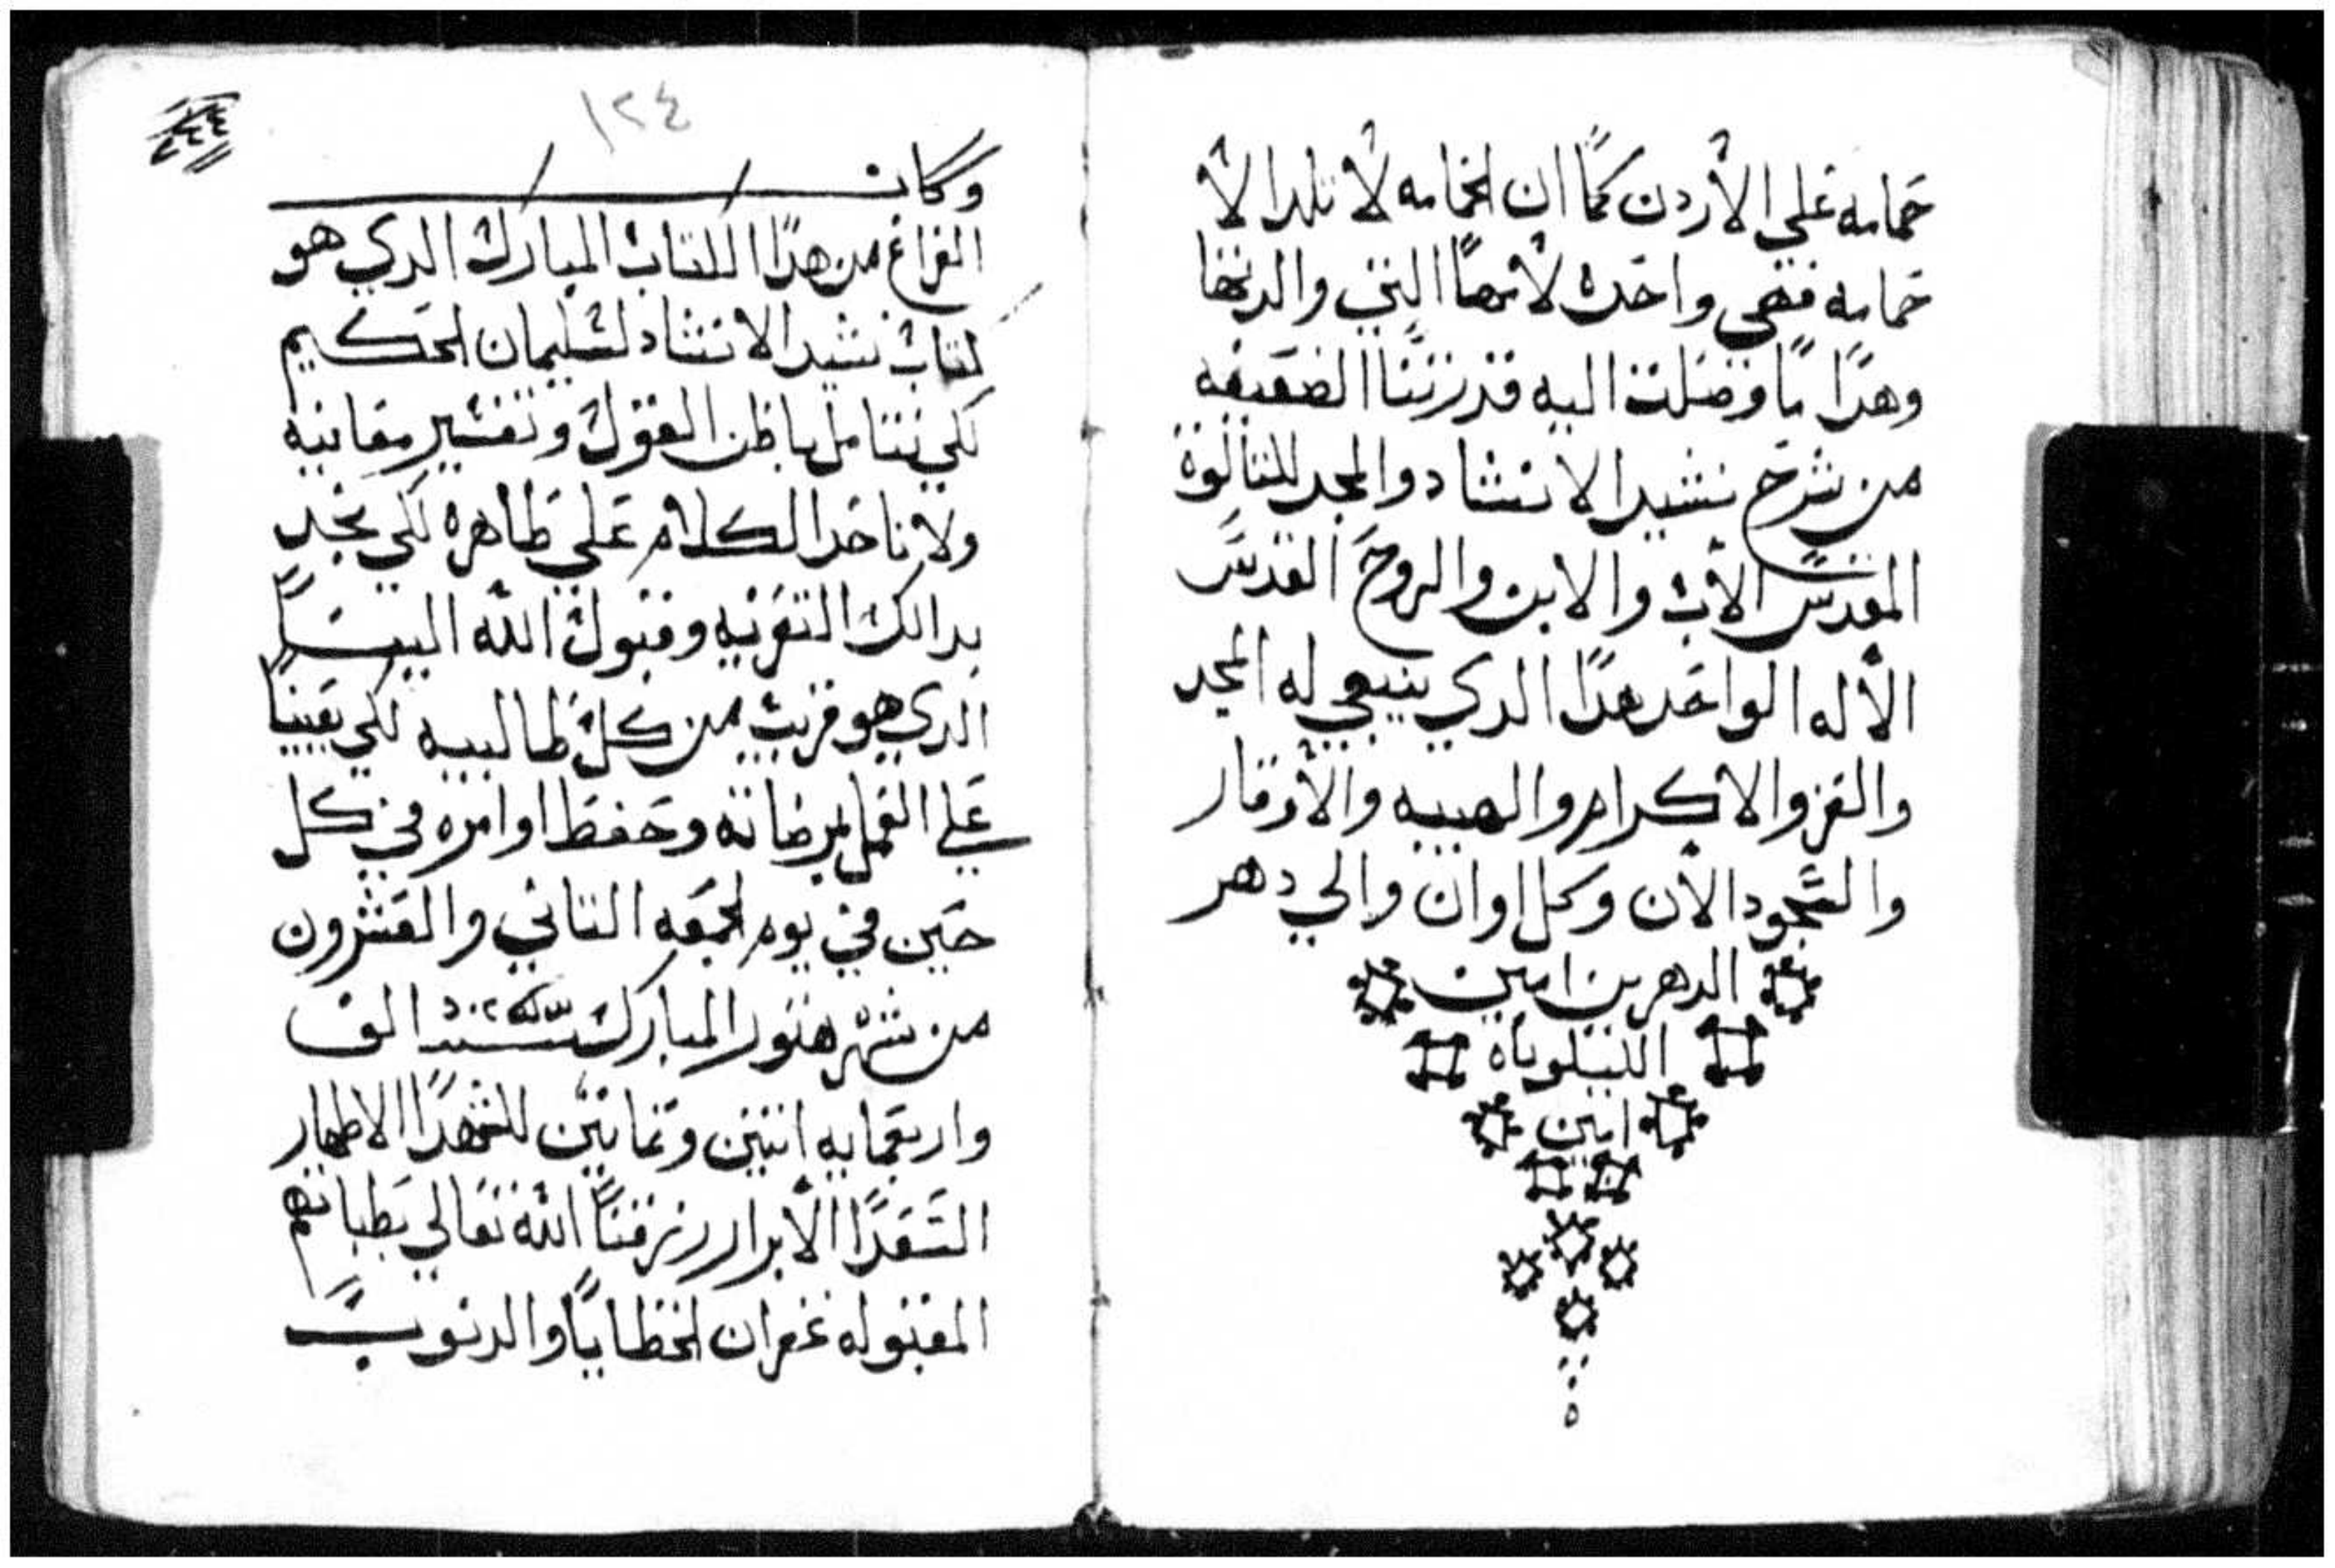 حمامه علي الأردن كما ان الحمامه لا تلد الا
حمامه فهي واحده لامها التي والدتها
وهدا ما وصلت اليه قدرتنا الضعيفه
من شرح نشيد الانشاد والمجد للتالوة
المقدس الأب والابن والروح القدس
الأله الواحد هدا الدي ينبغي له المجد
والعز والاكرام والهيبه والأوقار
والسجود الأن وكل اوان والي دهر
الدهرين امين
الليلوياه
امين
١٢٤
وكان
الفراغ من هدا الكتاب المبارك الدي هو
كتاب نشيد الانشاد لسليمان الحكيم
لكي نتامل باطن القول وتفسير معانيه
ولا ناخد الكلام علي ظاهره لكي نجد
بدالك التعزيه وقبول الله الينا
الدي هو قريب من كل طالبيه لكي يعيننا
علي العمل بمرضاته وحفظ اوامره في كل
حين في يوم الجمعه التاني والعشرون
من شهر هتور المبارك سنه الف
واربعمايه اتنين وتمانين للشهدا الاطهار
السعدا الأبرار رزقنا الله تعالي بطلباتهم
المقبوله غفران الخطايا والدنوب